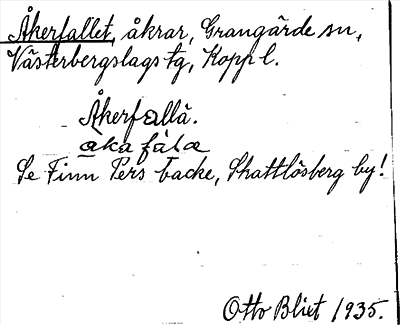 Åkerfallet, åkrar, Grangärde sn,
Västerbergslags tg, Koppl.
Åkerfallä.
åkafála
Se Finn Pers backe, Skattlösberg by!
Otto Blixt 1935.